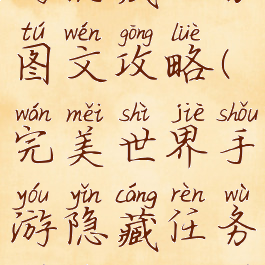 tú wén gōng lüè
图文攻略(
wán měi shì jiè shǒu
完美世界手
yóu yǐn cáng rèn wù
游隐藏任务